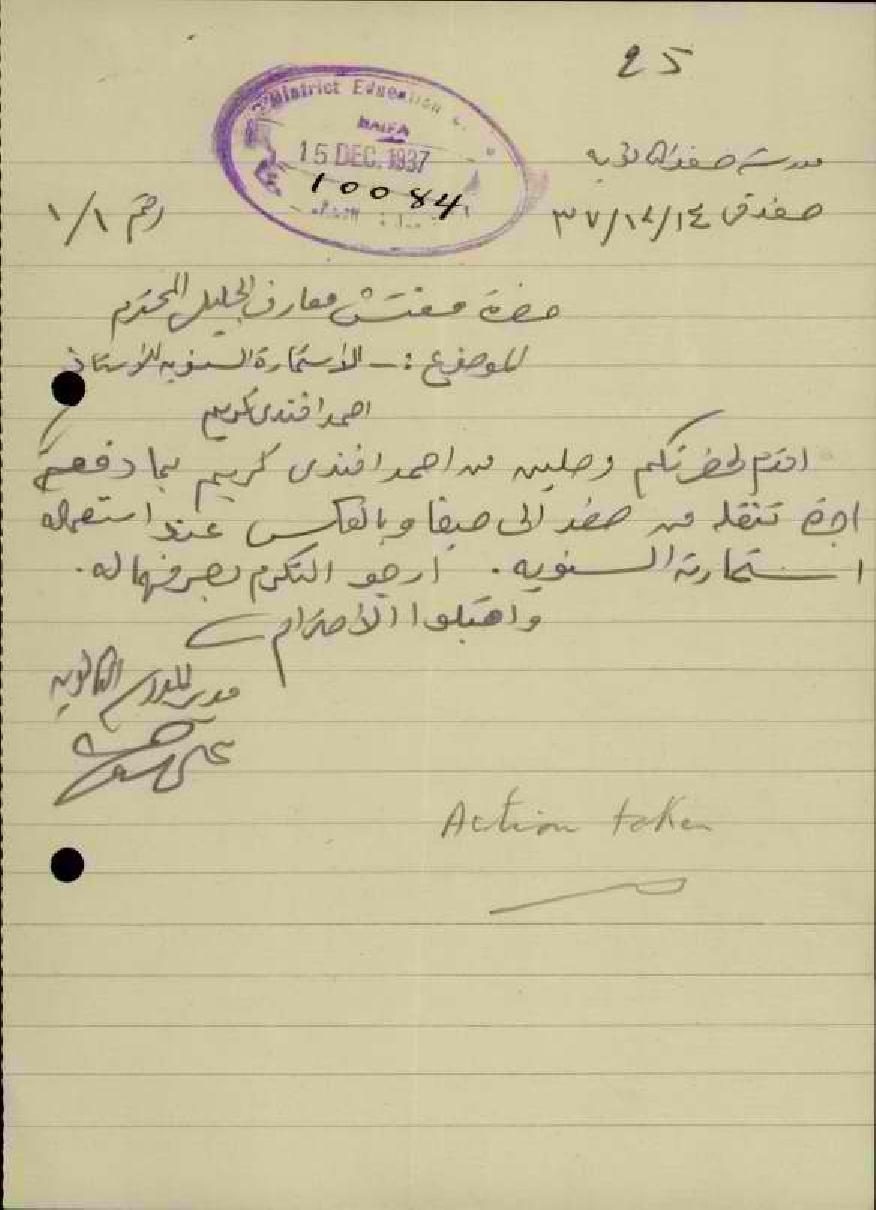 25
District Education
HAIFA
15 DEC. 1937
10084
مدرسة صفد الثانوية
صفد في ٣٧/١٢/١٤
رقم ١/١
حضرة مفتش معارف الجليل المحترم
الموضوع :ـ الاستمارة السنوية للاستاذ
احمد افندي كريم
اقدم لحضرتكم وصلين من احمد افندي كريم بما دفعه
اجرة تنقله من صفد الى حيفا وبالعكس عند استعماله
استمارته السنوية . ارجو التكرم بصرفها له .
واقبلوا الاحترام
مدير المدرسة الثانوية
Action taken